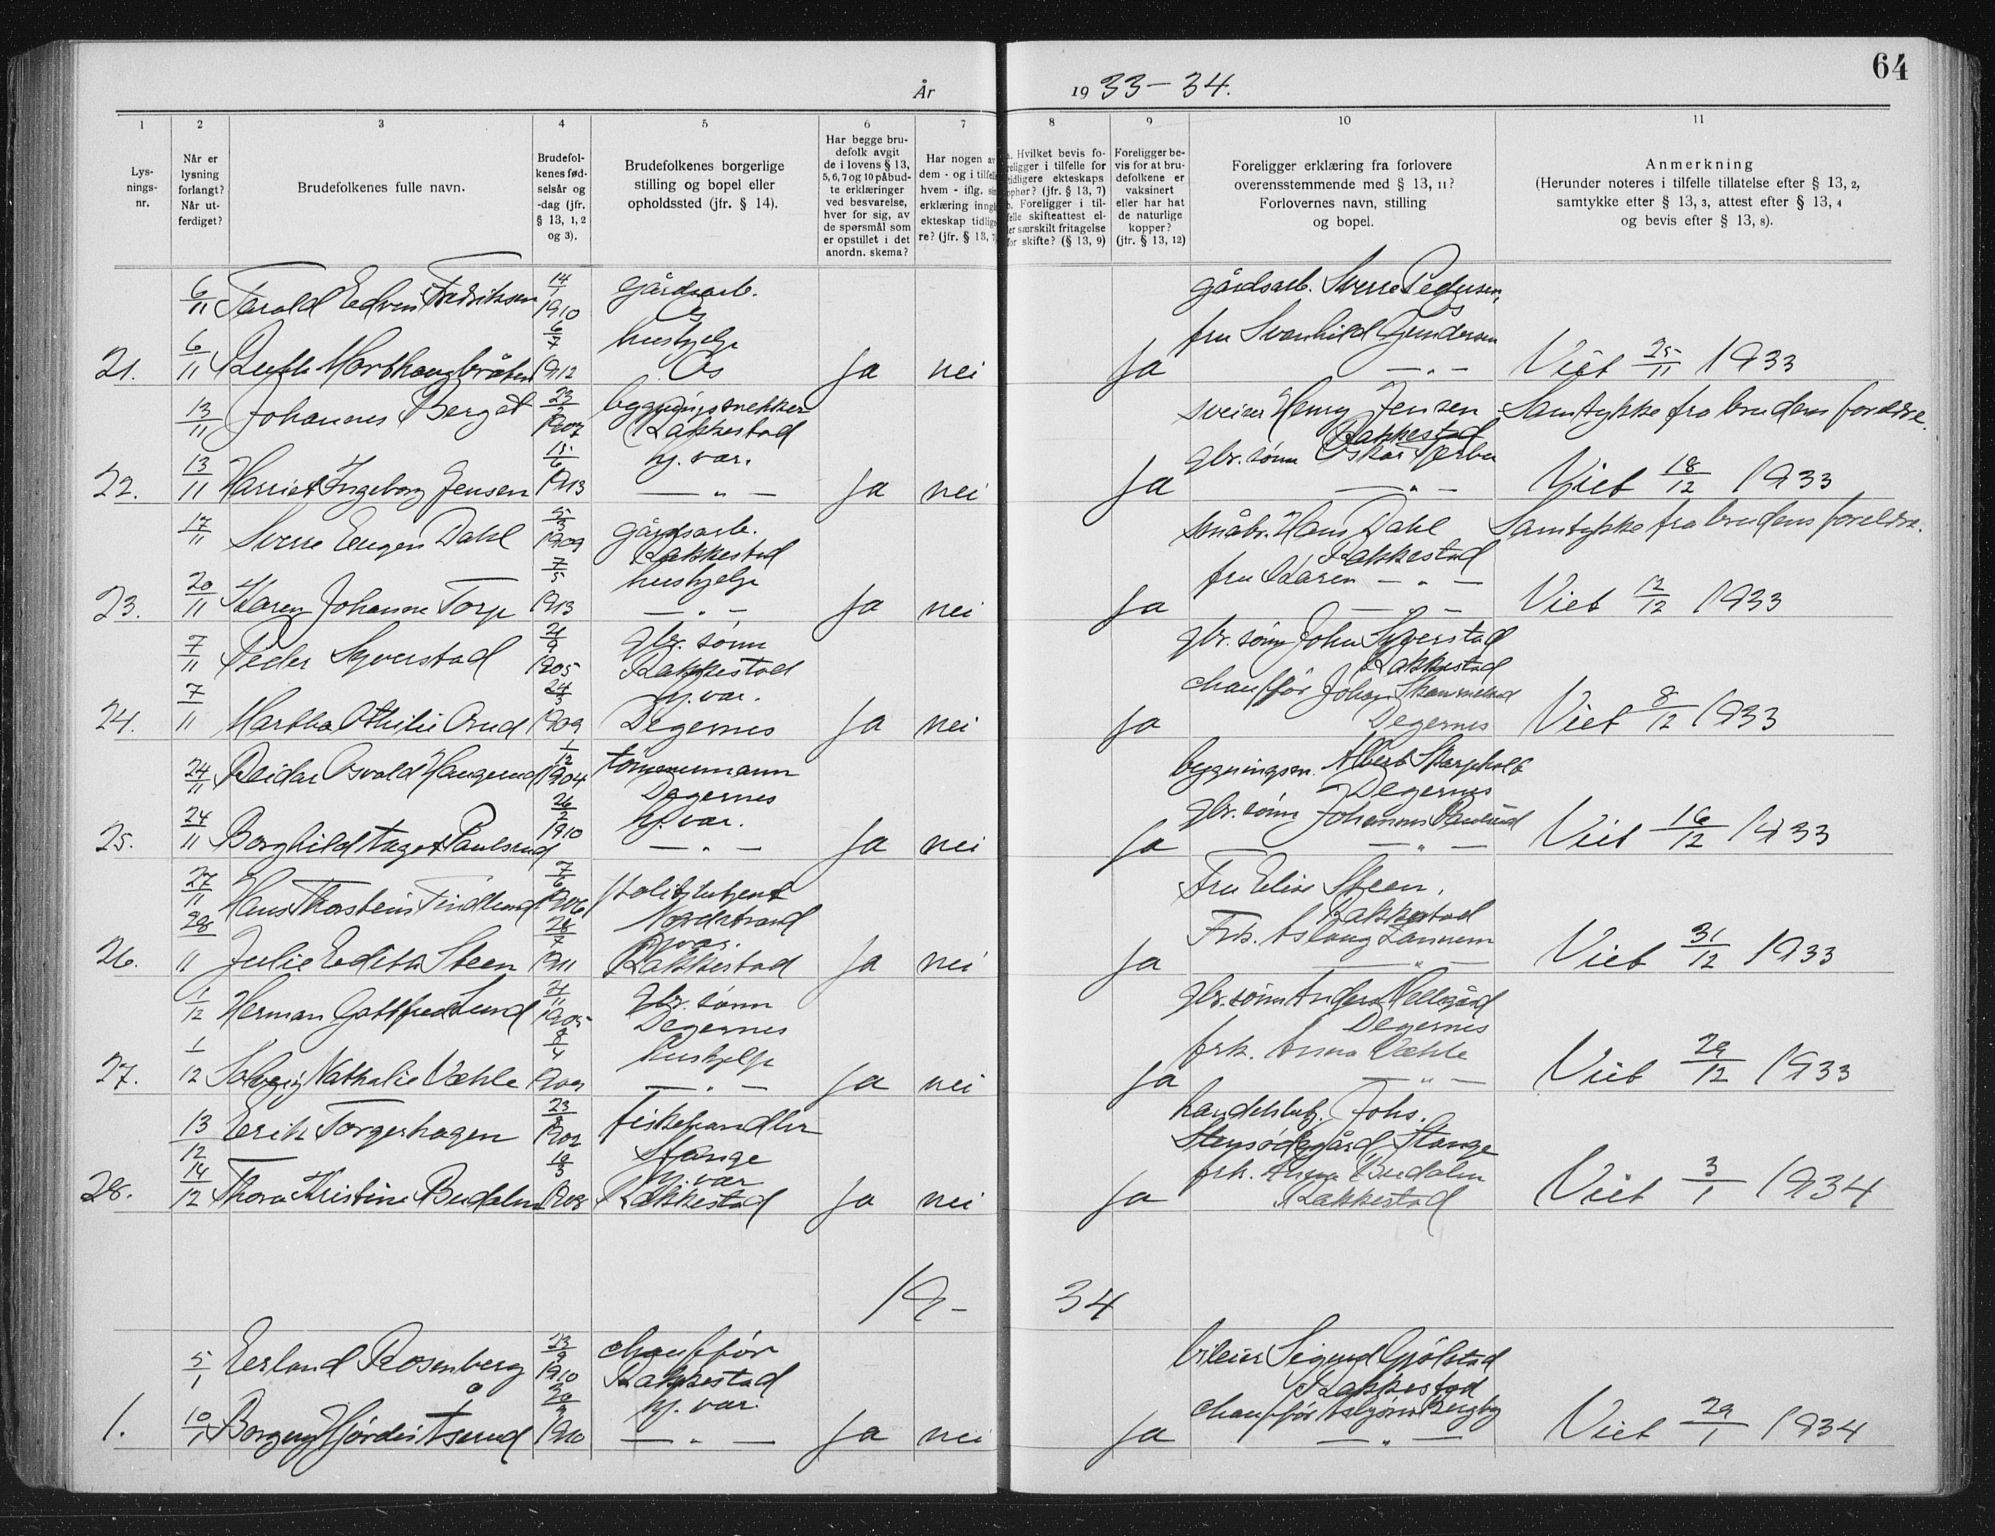 64
År 1933-34.
1 2 3 4 5 6 7 8 9 10 11
Lysnings-nr.
Når er lysning forlangt? Når utferdiget?
Brudefolkenes fulle navn.
Brudefolkenes fødselsår og -dag (jfr. § 13, 1, 2 og 3).
Brudefolkenes borgerlige stilling og bopel eller opholdssted (jfr. § 14).
Har begge brudefolk avgit de i lovens § 13, 5, 6, 7 og 10 påbudte erklæringer ved besvarelse, hver for sig, av de spørsmål som er opstillet i det anordn. skema?
Har nogen av dem - og i tilfelle hvem - iflg. sin erklæring inngått ekteskap tidligere? (jfr. § 13, 7)
Hvilket bevis foreligger i tilfelle for tidligere ekteskaps ophør? (jfr. § 13, 7) b. Foreligger i tilfelle skifteattest eller særskilt fritagelse for skifte? (§ 13, 9)
Foreligger bevis for at brudefolkene er vaksinert eller har hat de naturlige kopper? (jfr. § 13, 12)
Foreligger erklæring fra forlovere overensstemmende med § 13, 11? Forlovernes navn, stilling og bopel.
Anmerkning (Herunder noteres i tilfelle tillatelse efter § 13, 2, samtykke efter § 13, 3, attest efter § 13, 4 og bevis efter § 13, 8).
6/11 Edvin Fredriksen 1910 gårdsarb. Ås gårdsarb. Sverre Pedersen,
fru Svanhild Gundersen
21. 6/11 6/7 1912 hushjelp Ås Ja nei Ja — " — Viet 25/11 1933
13/11 Johannes Berget 23 bygningssnekker Rakkestad sveiser Henry Jensen Rakkestad Samtykke fra brudens foreldre.
22. 13/11 Harriet Ingeborg Jensen 15/6 1913 hj. vær. — " — Ja nei Ja gbr. sønn Oskar — " — Viet 18/12 1933
17/11 Sverre Eugen Dahl 5/3 1909 gårdsarb. Rakkestad småbr. Hans Dahl Rakkestad Samtykke fra brudens foreldre.
23. 20/11 Karen Johanne Torp 7/5 1913 hushjelp — " — Ja nei Ja fru Karen — " — — " — Viet 12/12 1933
7/11 Peder Syverstad 1905 gbr. sønn Rakkestad gbr. sønn John Syverstad Rakkestad
24. 7/11 Martha Othilie Orud 24/3 1909 hj. vær. Degernes Ja nei Ja chauffør Johan Degernes Viet 8/12 1933
24/11 Reidar Osvald Haugerud 1/12 1904 tømmermann Degernes bygningsm. Albert Skarpholt Degernes
25. 24/11 Borghild Paulsrud 26/2 1910 hj. vær. — " — Ja nei Ja gbr. sønn Johannes — " — Viet 16/12 1933
27/11 Hans Thorstein 7/6 1906 politibetjent Nordstrand Fru Elise Steen, Rakkestad
26. 28/11 Julie Edith Steen 1911 Rakkestad Ja nei Ja Frk. Aslaug — " — Viet 31/12 1933
1/12 Herman Gottfred Lund 1905 gbr. sønn Degernes gbr. sønn Anders Degernes
27. 1/12 Solveig Nathalie Væhle 8/4 1909 hushjelp — " — Ja nei Ja frk. Anna Væhle — " — Viet 29/12 1933
13/12 Erik Torgerhagen 23 1902 fiskehandler Stange handelsbetj. Johs. Stensødegård Stange
28. 14/12 Thora Kristine Budalen 1908 hj. vær Rakkestad Ja nei Ja frk. Anna Budalen Rakkestad Viet 3/1 1934
19-34
5/1 Erland Rosenberg 23/9 1910 chauffør Rakkestad bileier Sigurd Gjølstad Rakkestad
1. 10/1 Borgny Hjørdis Åserud 1910 hj. vær. — " — Ja nei Ja chauffør Asbjørn Bergby — " — Viet 29/1 1934